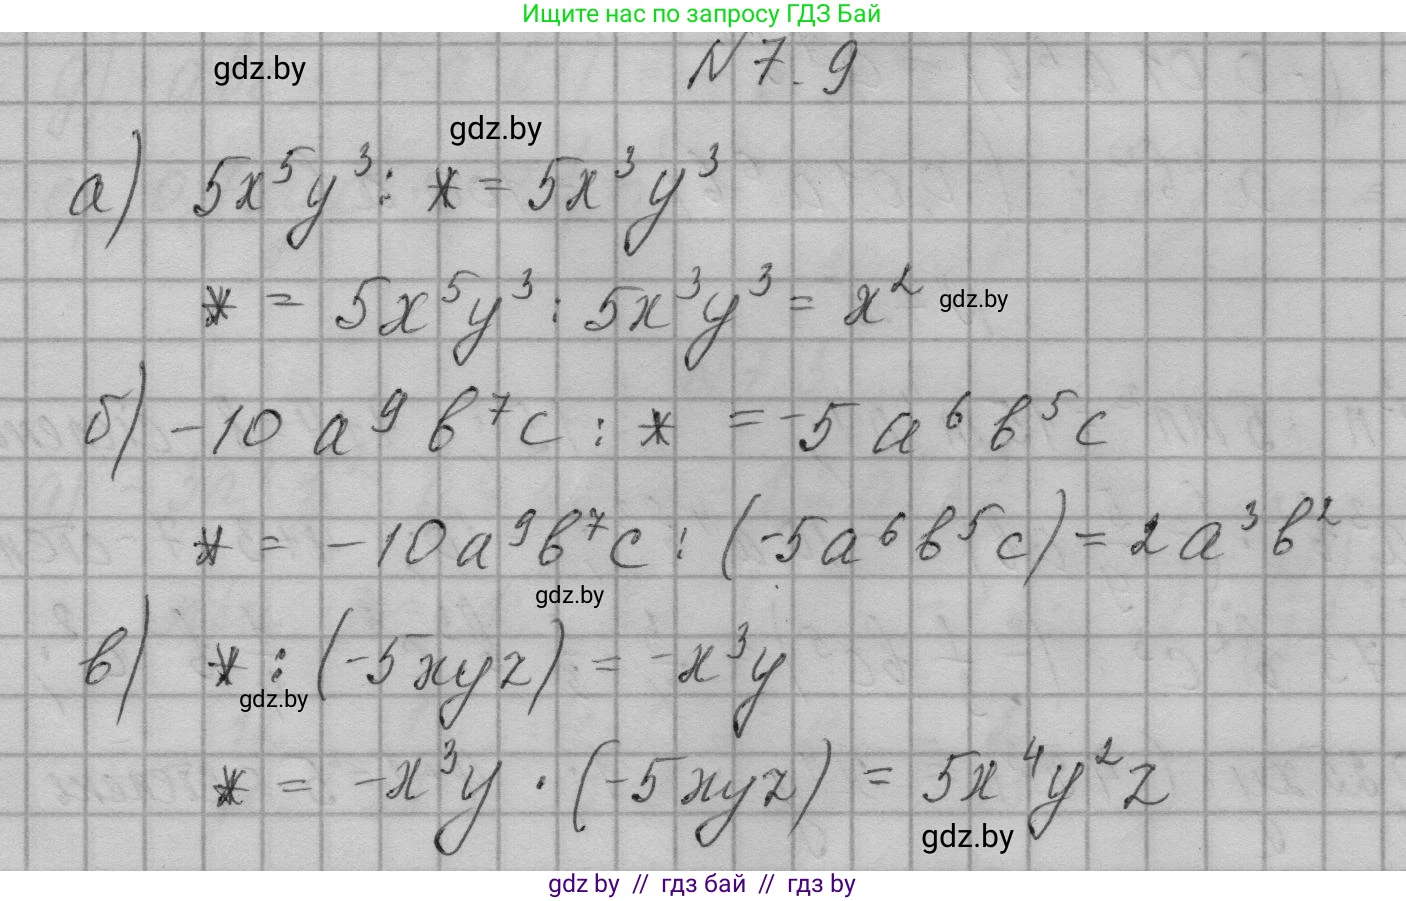 Ищите нас по запросу ГДЗ Бай
N 7.9
gdz.by
gdz.by
а) 5x⁵y³ : * = 5x³y³
* = 5x⁵y³ : 5x³y³ = x²
gdz.by
б) -10a⁹b⁷c : * = -5a⁶b⁵c
* = -10a⁹b⁷c : (-5a⁶b⁵c) = 2a³b²
gdz.by
в) * : (-5xyz) = -x³y
gdz.by
* = -x³y · (-5xyz) = 5x⁴y²z
gdz.by
gdz by // гдз бай // гдз by